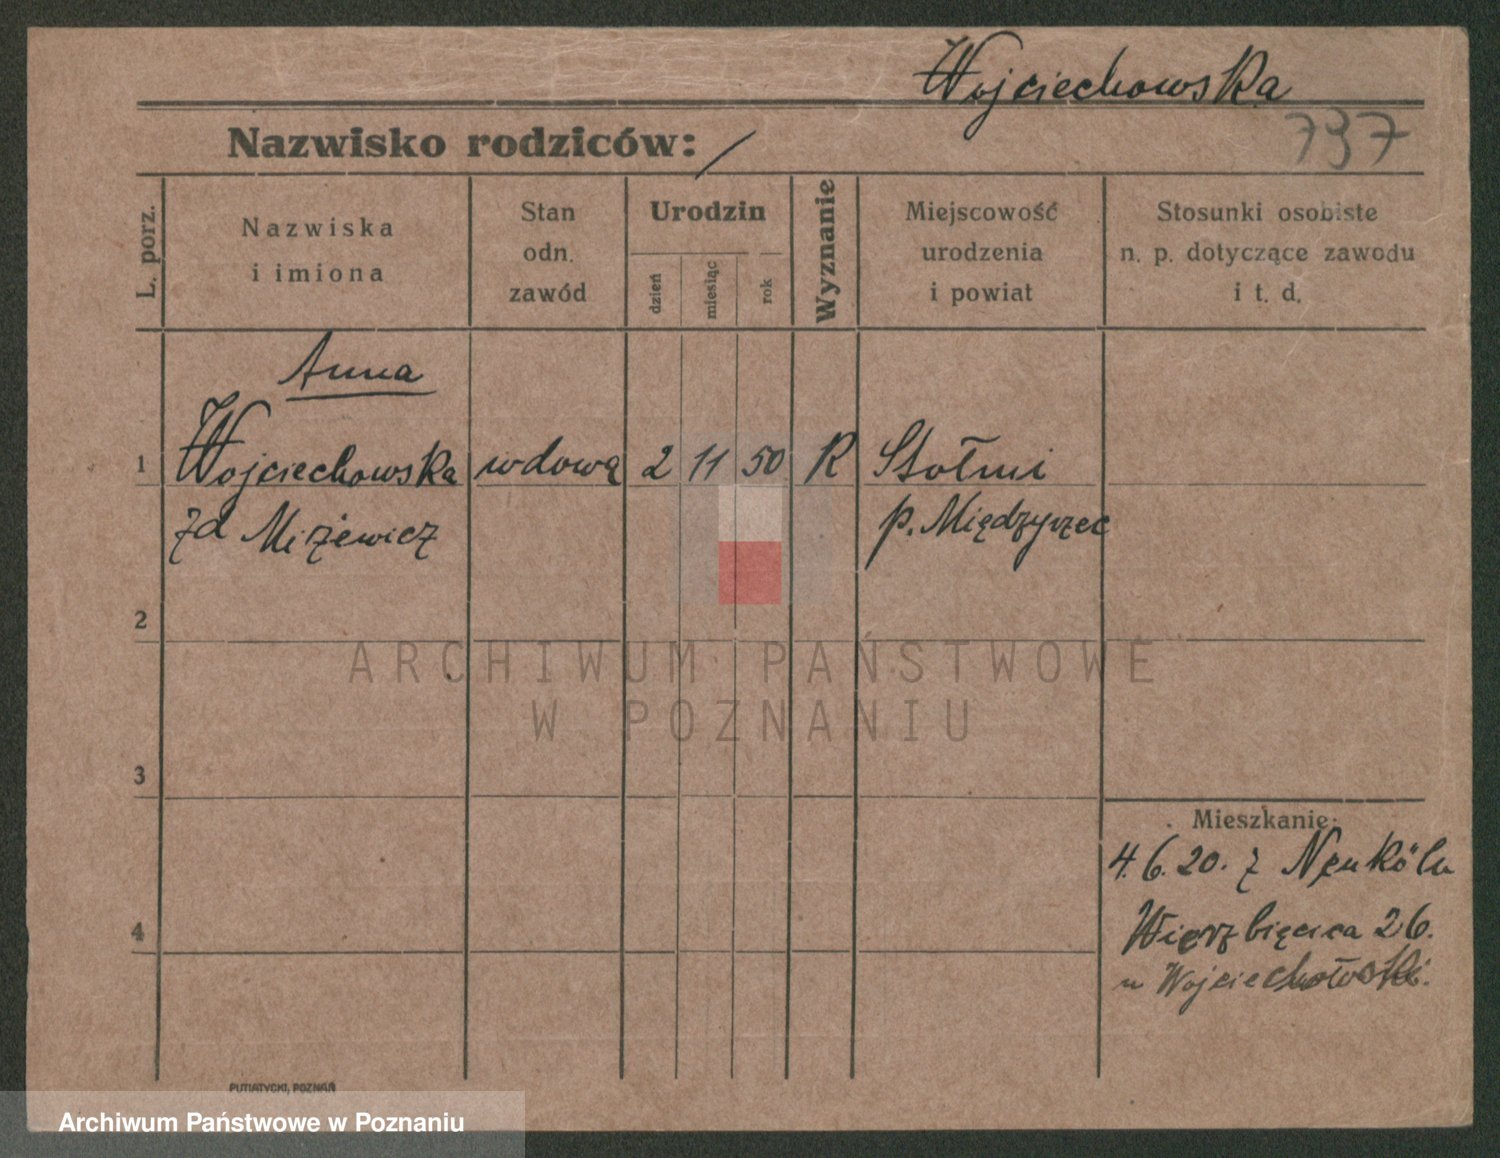 Wojciechowska
797
Nazwisko rodziców: /
L. porz.
Nazwiska
i imiona
Stan
odn.
zawód
Urodzin
dzień
miesiąc
rok
Wyznanie
Miejscowość
urodzenia
i powiat
Stosunki osobiste
n. p. dotyczące zawodu
i t. d.
Anna
1 Wojciechowska wdowa 2 11 50 R Stołmi
zd Miżewicz p. Międzyrzec
2
ARCHIWUM PAŃSTWOWE
W POZNANIU
3
Mieszkanie:
4.6.20. z Neuköln
4
Wierzbięcica 26.
u Wojciechowski.
PUTIATYCKI, POZNAŃ
Archiwum Państwowe w Poznaniu